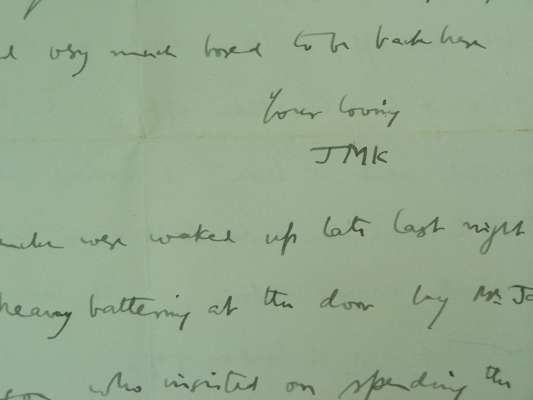 very much bored to be back here
Your loving
JMK
were waked up late last night
heavy battering at the door by Mr. Ja
who insisted on spending the